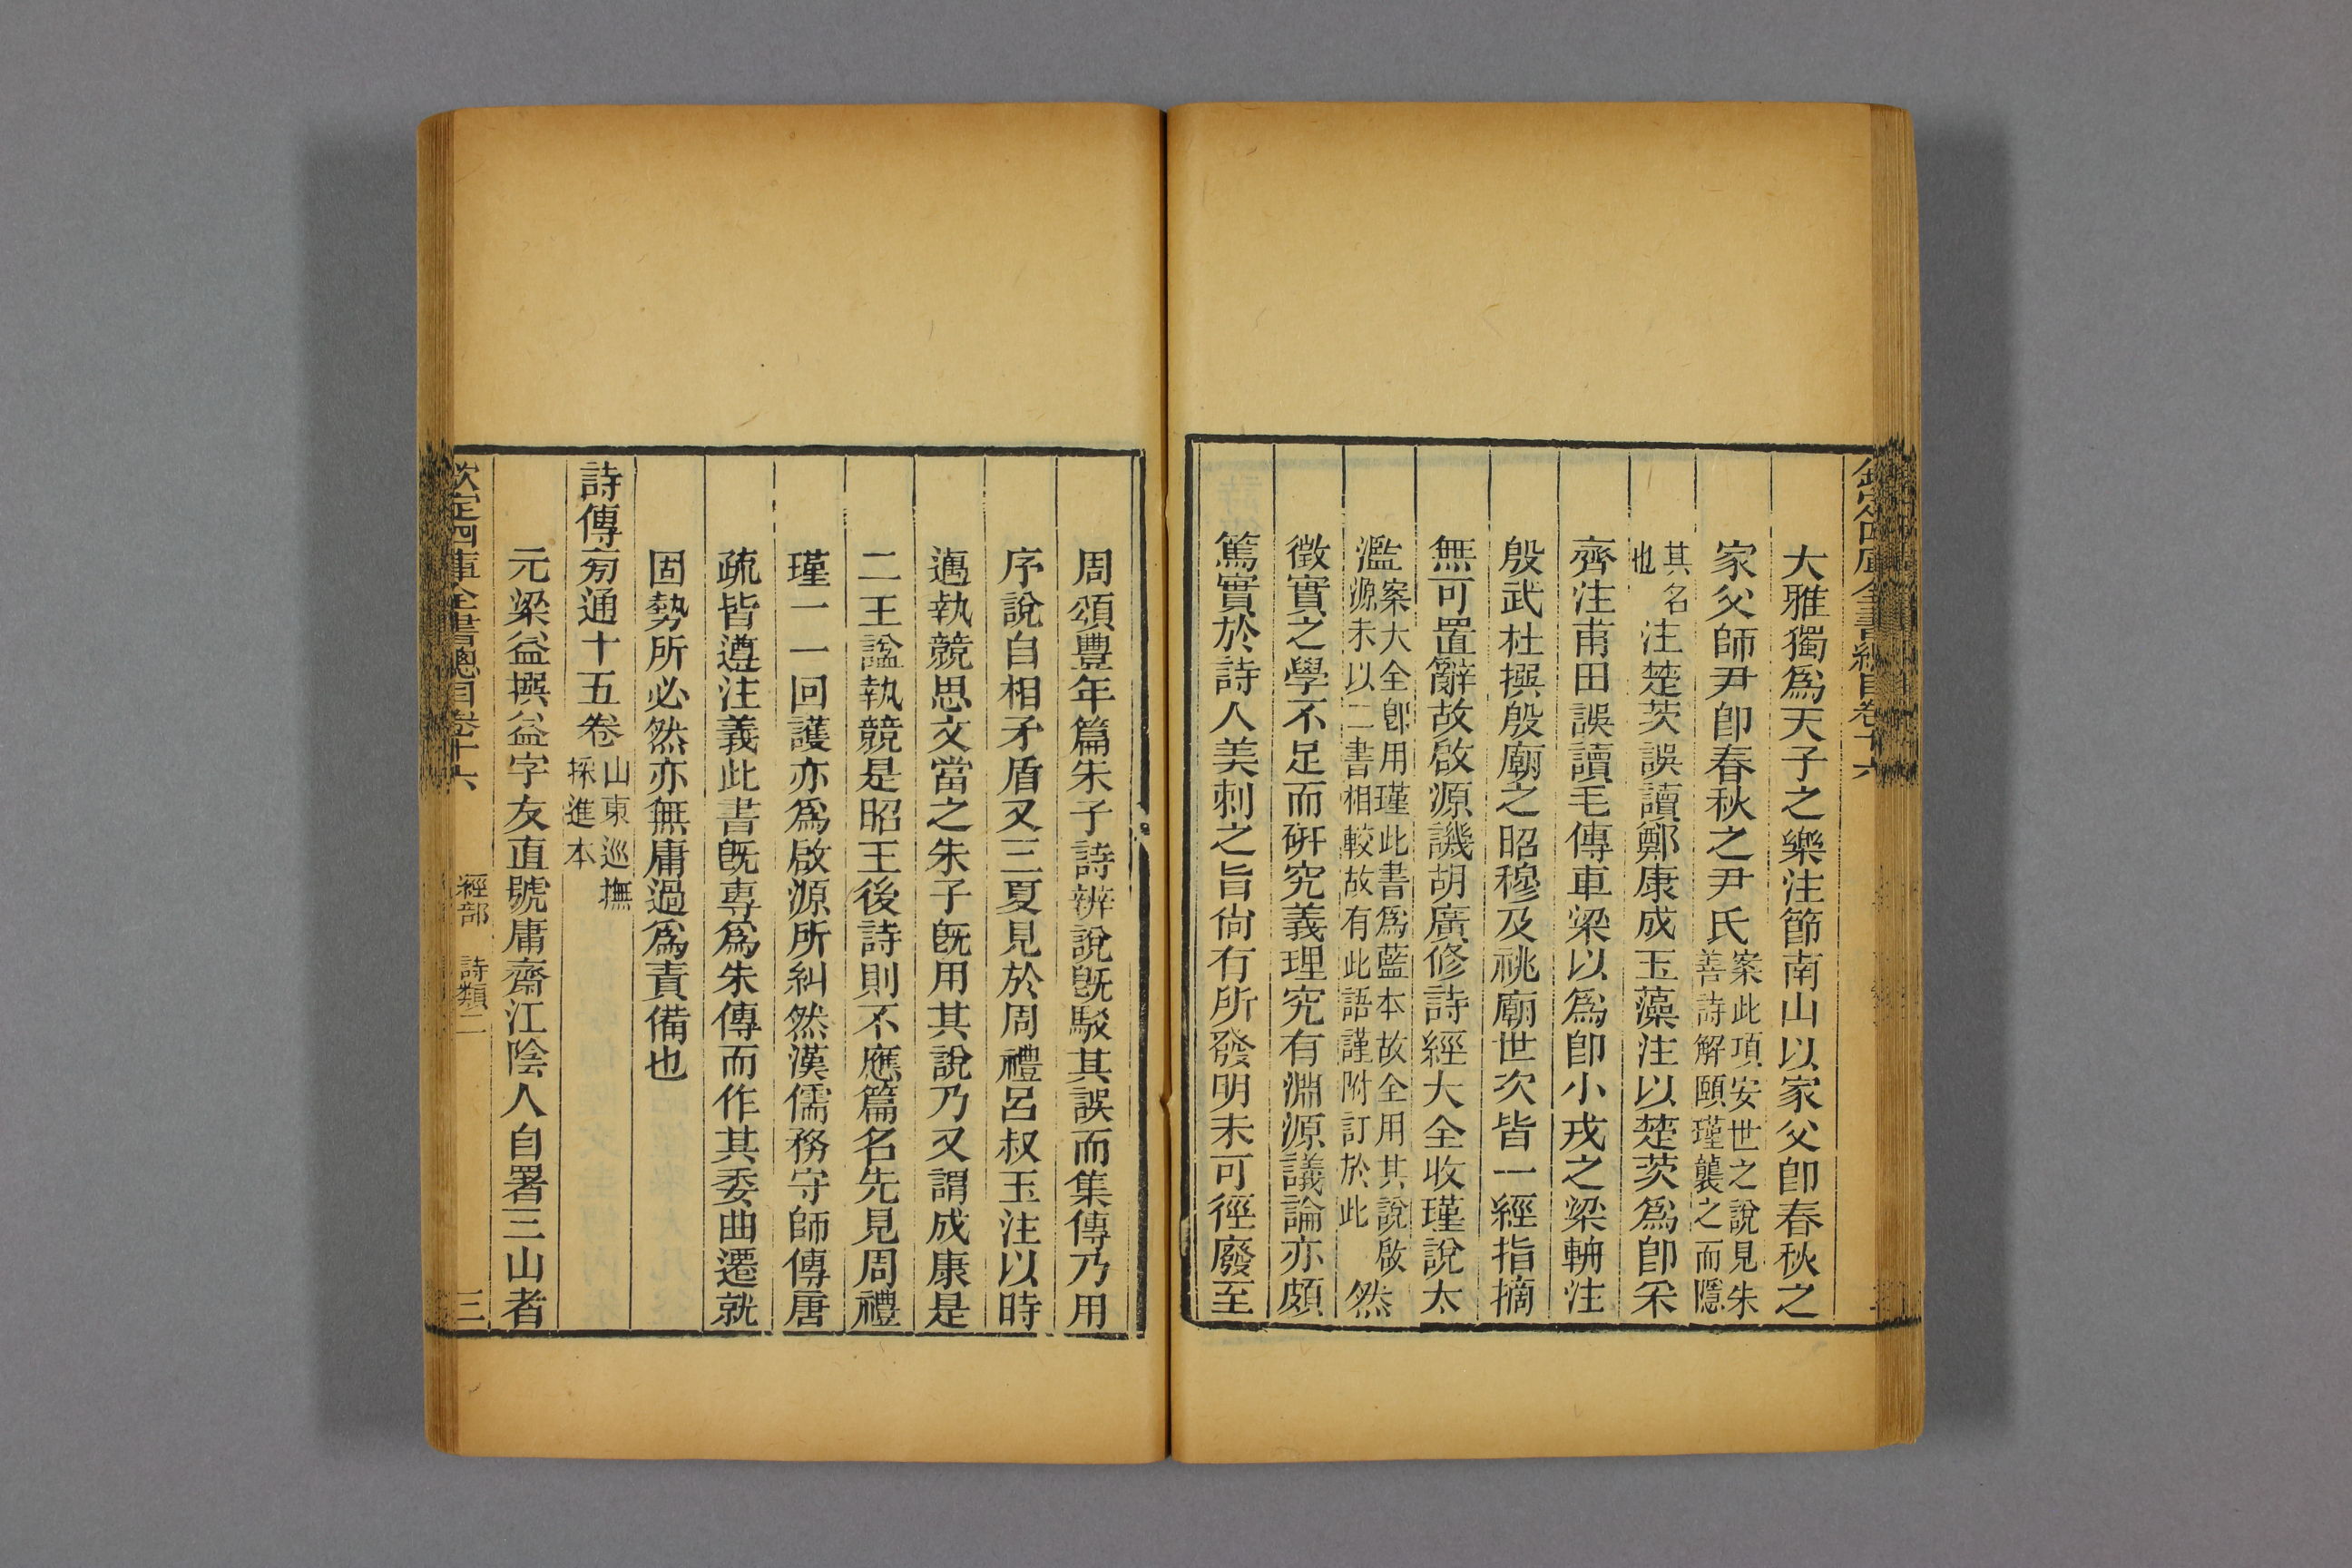 欽定四庫全書總目卷十六
大雅獨爲天子之樂注節南山以家父卽春秋之
家父師尹卽春秋之尹氏案此項安世之說見朱善詩解頤瑾襲之而隱
其名也注楚茨誤讀鄭康成玉藻注以楚茨爲卽采
齊注甫田誤讀毛傳車梁以爲卽小戎之梁輈注
殷武杜撰殷廟之昭穆及祧廟世次皆一經指摘
無可置辭故啟源譏胡廣修詩經大全收瑾說太
濫案大全卽用瑾此書爲藍本故全用其說啟源未以二書相較故有此語謹附訂於此然
徵實之學不足而硏究義理究有淵源議論亦頗
篤實於詩人美刺之旨尙有所發明未可徑廢至
周頌豐年篇朱子詩辨說旣駁其誤而集傳乃用
序說自相矛盾又三夏見於周禮呂叔玉注以時
邁執競思文當之朱子旣用其說乃又謂成康是
二王諡執競是昭王後詩則不應篇名先見周禮
瑾一一回護亦爲啟源所糾然漢儒務守師傳唐
疏皆遵注義此書旣專爲朱傳而作其委曲遷就
固勢所必然亦無庸過爲責備也
詩傳旁通十五卷山東巡撫採進本
元梁益撰益字友直號庸齋江陰人自署三山者
欽定四庫全書總目卷十六 經部 詩類二 三